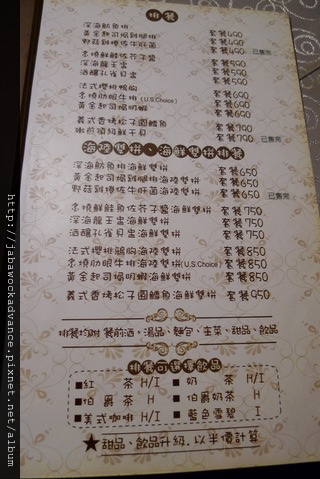 排餐
深海魴魚排 套餐490
黃金起司褐雞腿排 套餐490
野菇雞捲佐牛肝菌 套餐490 已售完
香燒鮮鮭佐芥子醬 套餐590
深海龍王蝦 套餐590
酒釀孔雀貝 套餐590
法式櫻桃鴨胸 套餐690
香燒肋眼牛排 (U.S.Choice) 套餐690
黃金起司焗明蝦 套餐690
義式香烤松子圓鱈魚 套餐790
嫩煎頂級鮮干貝 套餐790 已售完
海陸雙拼、海鮮雙拼排餐
深海魴魚排海鮮雙拼 套餐650
黃金起司褐雞腿排海陸雙拼 套餐650
野菇雞捲佐牛肝菌海陸雙拼 套餐650 已售完
香燒鮮鮭魚佐芥子醬海鮮雙拼 套餐750
深海龍王海鮮雙拼 套餐750
酒釀孔雀貝海鮮雙拼 套餐750
法式櫻桃鴨胸海陸雙拼 套餐850
香燒肋眼牛排海陸雙拼(U.S.Choice) 套餐850
黃金起司焗明蝦海鮮雙拼 套餐850
義式香烤松子圓鱈魚海鮮雙拼 套餐950
排餐均附 餐前酒、湯品、麵包、主菜、甜品、飲品
排餐可選擇飲品
■紅 茶 H/I ■奶 茶 H/I
■伯爵茶 H ■伯爵奶茶 H
■美式咖啡 H/I ■藍色雪碧 I
★甜品、飲品升級.以半價計算
http://jabawockadvance.pixnet.net/album